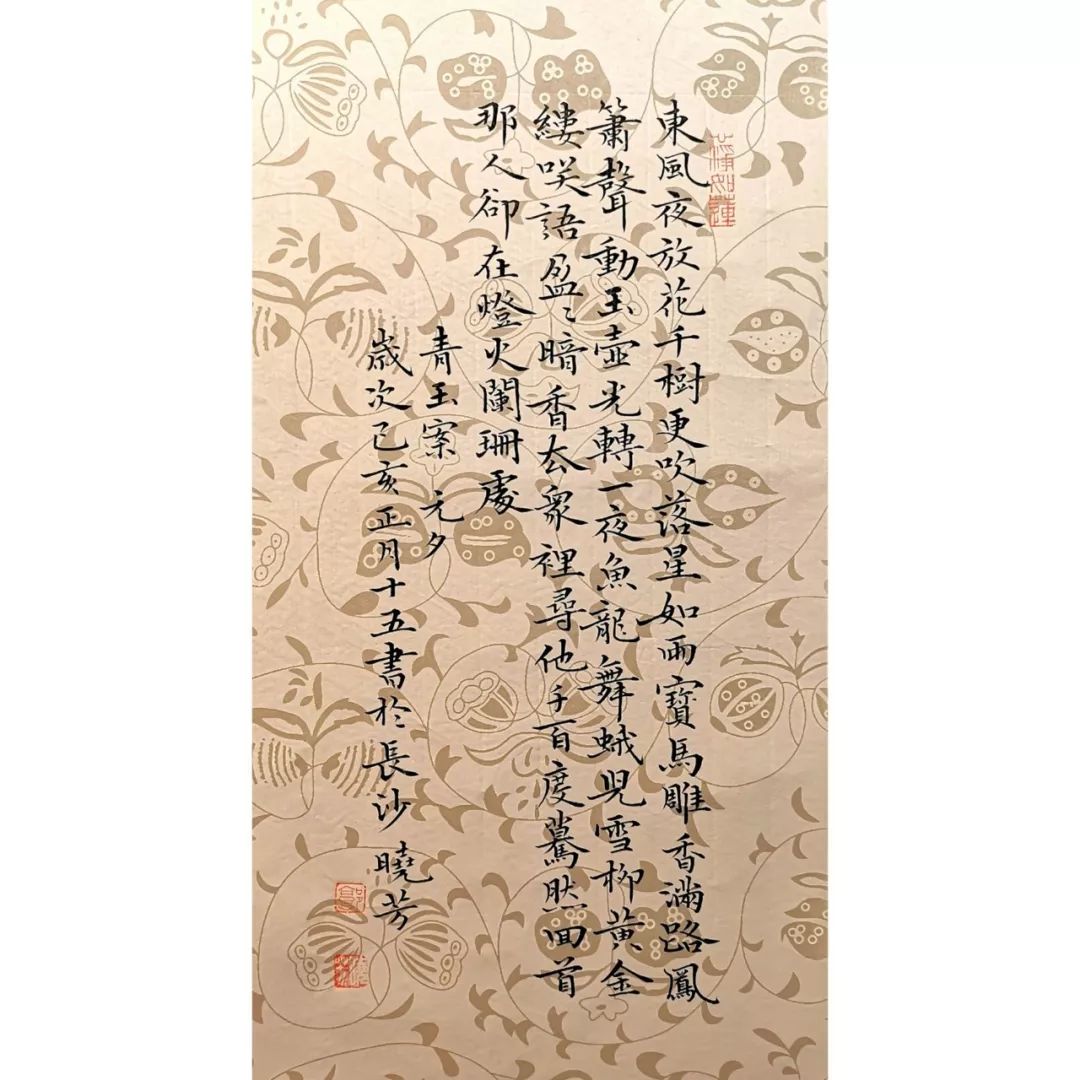 東風夜放花千樹更吹落星如雨寶馬雕香滿路鳳
簫聲動玉壺光轉一夜魚龍舞蛾兒雪柳黃金
縷咲語盈〻暗香厺眾裡尋他千百度驀然回首
那人卻在燈火闌珊處
青玉案 元夕
歲次己亥正月十五書於長沙 曉芳